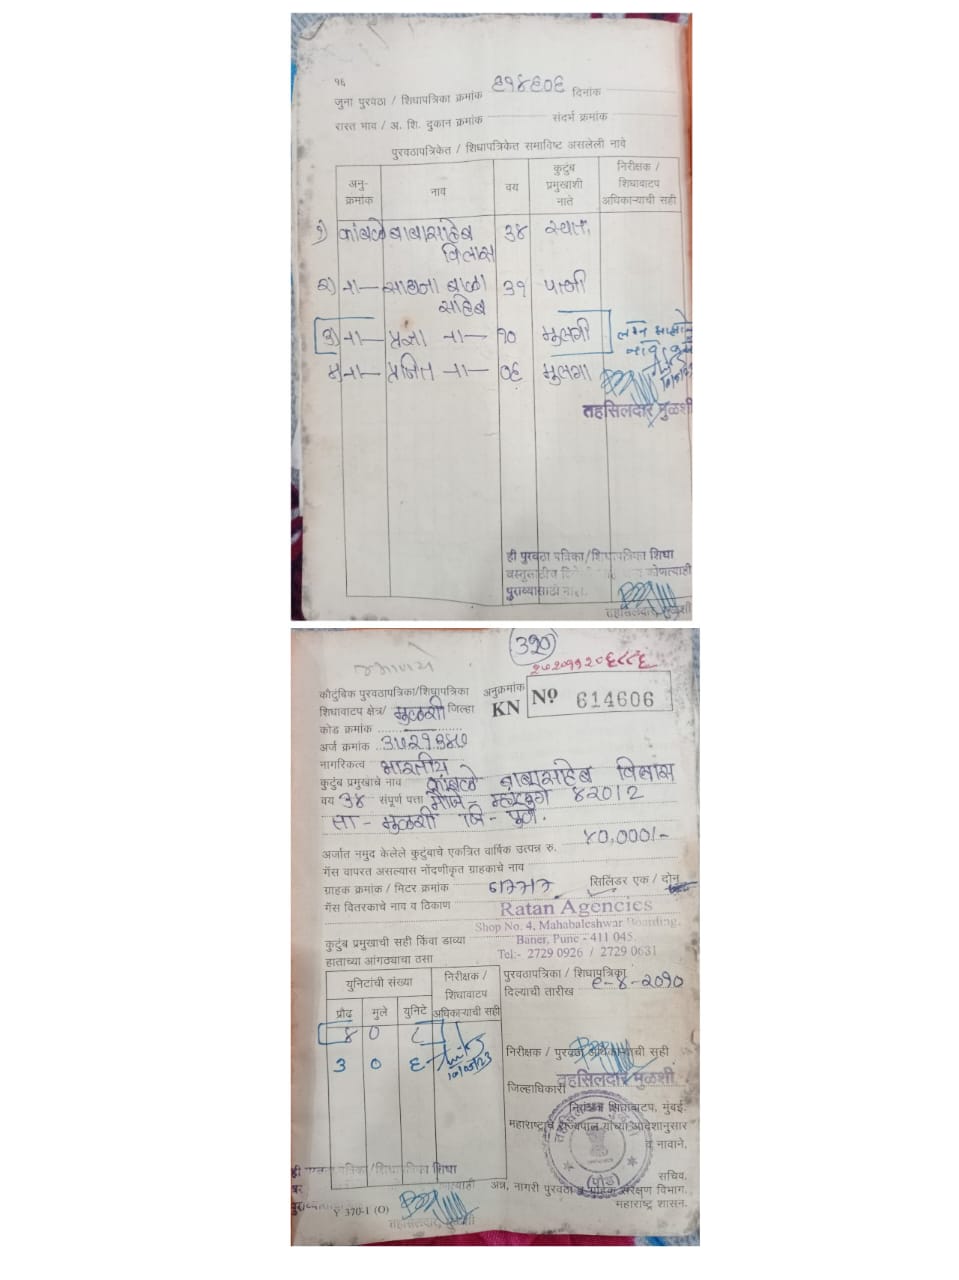 १६
जुना पुरवठा / शिधापत्रिका क्रमांक ६१४६०६ दिनांक
रास्त भाव / अ. शि. दुकान क्रमांक संदर्भ क्रमांक
पुरवठापत्रिकेत / शिधापत्रिकेत समाविष्ट असलेली नावे
अनु-क्रमांक नाव वय कुटुंब प्रमुखाशी नाते निरीक्षक / शिधावाटप अधिकाऱ्याची सही
१) कांबळे बाबासाहेब ३४ स्वतः
विलास
२) -ना- साधना बाळा ३१ पत्नी
साहेब
३) -ना- प्रज्ञा -ना- १० मुलगी
-ना- प्रजित -ना- ०६ मुलगा
१०/०५/२३
तहसिलदार मुळशी
ही पुरवठा पत्रिका/शिधापत्रिका शिधा
कोणत्याही
पुराव्यासाठी नाही.
तहसिलदार, मुळशी
३२०
कौटुंबिक पुरवठापत्रिका/शिधापत्रिका अनुक्रमांक
शिधावाटप क्षेत्र/ मुळशी जिल्हा KN Nº 614606
कोड क्रमांक
अर्ज क्रमांक
नागरिकत्व भारतीय
कुटुंब प्रमुखाचे नाव कांबळे बाबासाहेब विलास
वय ३४ संपूर्ण पत्ता मौजे - म्हाळुंगे
ता - मुळशी जि - पुणे.
अर्जात नमुद केलेले कुटुंबाचे एकत्रित वार्षिक उत्पन्न रु. ४०,०००/-
गॅस वापरत असल्यास नोंदणीकृत ग्राहकाचे नाव
ग्राहक क्रमांक / मिटर क्रमांक सिलिंडर एक / दोन
गॅस वितरकाचे नाव व ठिकाण Ratan Agencies
Shop No. 4, Mahabaleshwar Boarding.
Baner, Pune - 411 045.
Tel:- 2729 0926 / 2729 0631
कुटुंब प्रमुखाची सही किंवा डाव्या
हाताच्या आंगठ्याचा ठसा
युनिटांची संख्या निरीक्षक / शिधावाटप अधिकाऱ्याची सही
प्रौढ मुले युनिटे
४ ० ८
३ ० ६ १०/०५/२३
पुरवठापत्रिका / शिधापत्रिका
दिल्याची तारीख ८-४-२०१०
निरीक्षक / पुरवठा अधिकाऱ्याची सही
तहसिलदार मुळशी
जिल्हाधिकारी
नियंत्रक शिधावाटप, मुंबई.
महाराष्ट्राचे राज्यपाल यांच्या आदेशानुसार
व नावाने,
(पौड)
सचिव,
अन्न, नागरी पुरवठा व ग्राहक संरक्षण विभाग,
महाराष्ट्र शासन.
Y 370-1 (O)
तहसिलदार, मुळशी